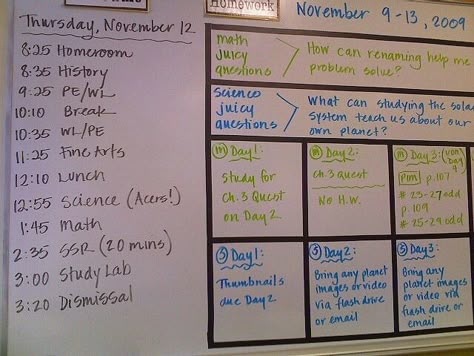 Homework
Thursday, November 12
8:25 Homeroom
8:35 History
9:25 PE/WL
10:10 Break
10:35 WL/PE
11:25 Fine Arts
12:10 Lunch
12:55 Science (Acers!)
1:45 Math
2:35 SSR (20 mins)
3:00 Study Lab
3:20 Dismissal
November 9-13, 2009
math
juicy
questions
How can renaming help me
problem solve?
science
juicy
questions
What can studying the sola
system teach us about our
own planet?
m Day 1:
Study for
Ch. 3 Quest
on Day 2
m Day 2:
Ch. 3 Quest
No H.W.
m Day 3:
p. 107
# 23-27 odd
p. 109
# 25-29 odd
S Day 1:
Thumbnails
due Day 2
S Day 2:
Bring any planet
images or video
via flash drive
or email
S Day 3:
Bring any
planet images
or video via
flash drive or
email